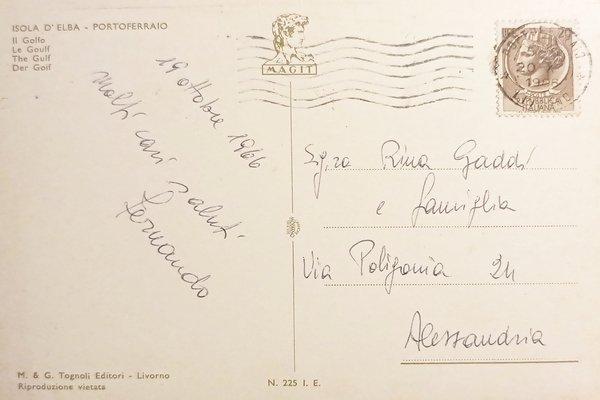 ISOLA D'ELBA - PORTOFERRAIO
Il Golfo
Le Goulf
The Gulf
Der Golf
MAGIT
19 ottobre 1966
Molti cari saluti
Fernando
Sig.ra Rina Gaddi
e famiglia
Via Poligonia 24
Alessandria
M. & G. Tognoli Editori - Livorno
Riproduzione vietata
N. 225 I. E.
REPUBBLICA
ITALIANA